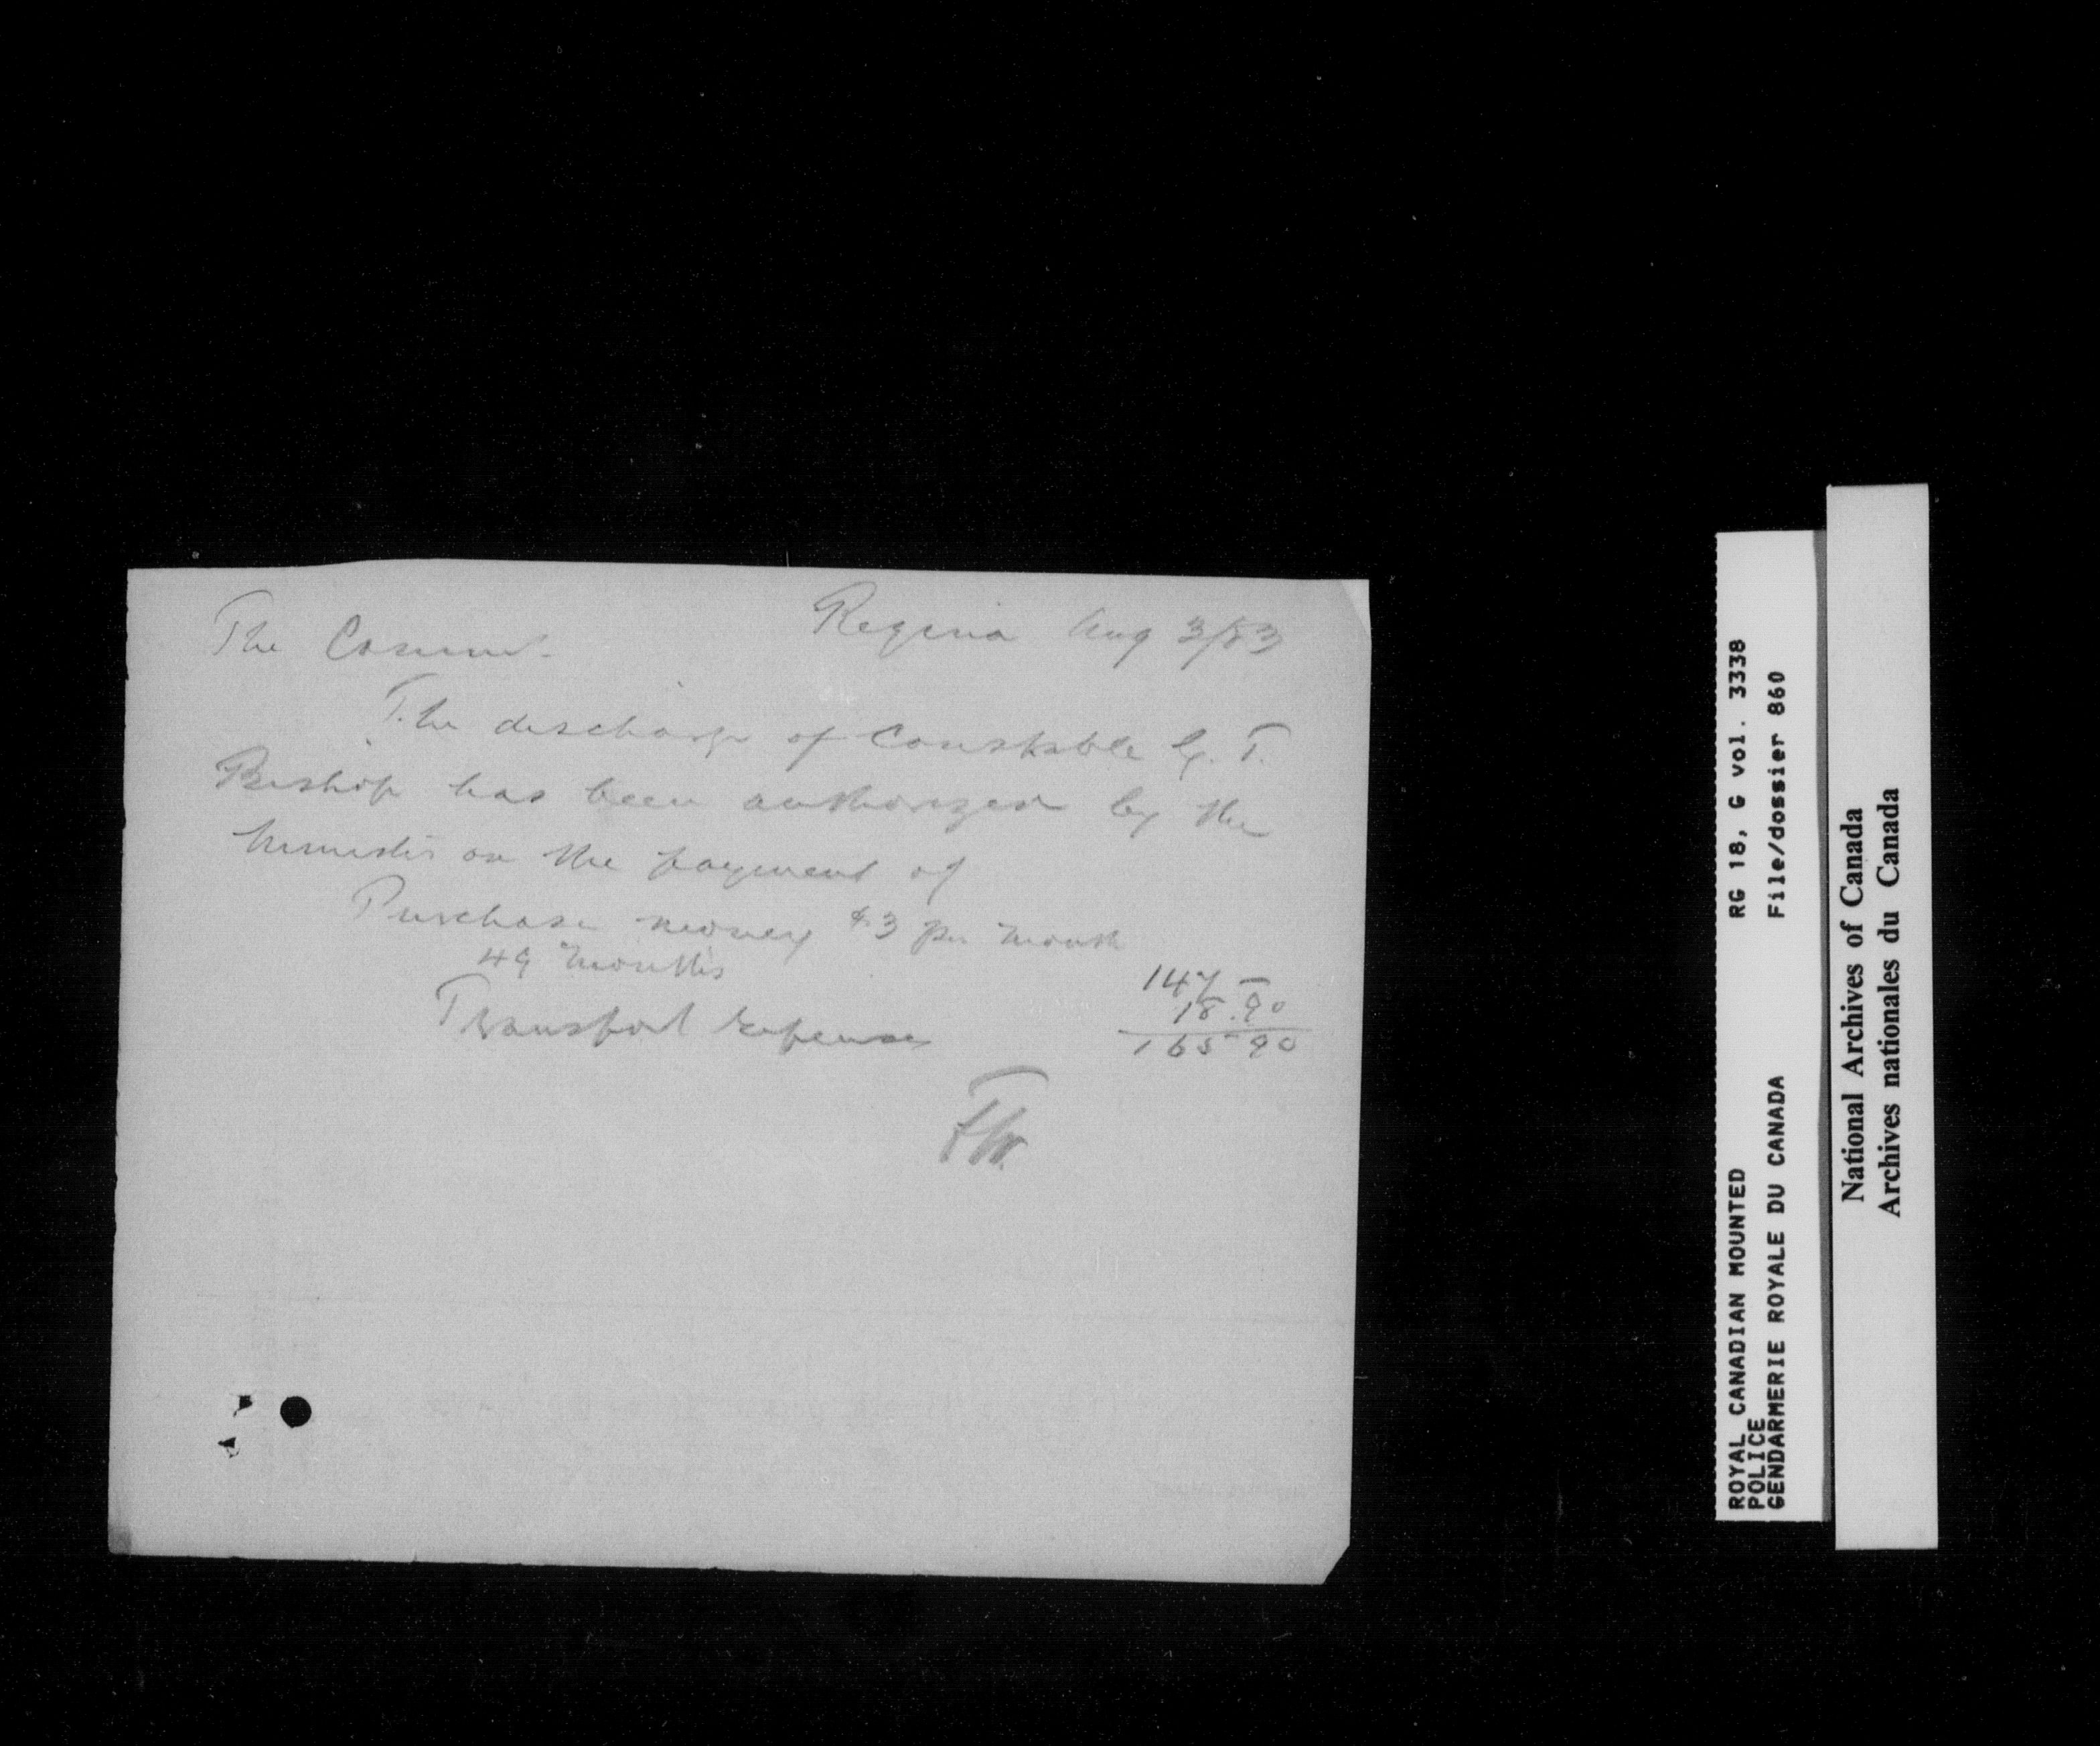 Regina Aug 3/83
The Commr.
The discharge of Constable G. T.
Bishop has been authorized by the
Minister on the payment of
Purchase money $3 per month
49 months 147 –
Transport expenses 18.90
165 90
FW.
ROYAL CANADIAN MOUNTED RG 18, G vol. 3338
POLICE
GENDARMERIE ROYALE DU CANADA File/dossier 860
National Archives of Canada
Archives nationales du Canada